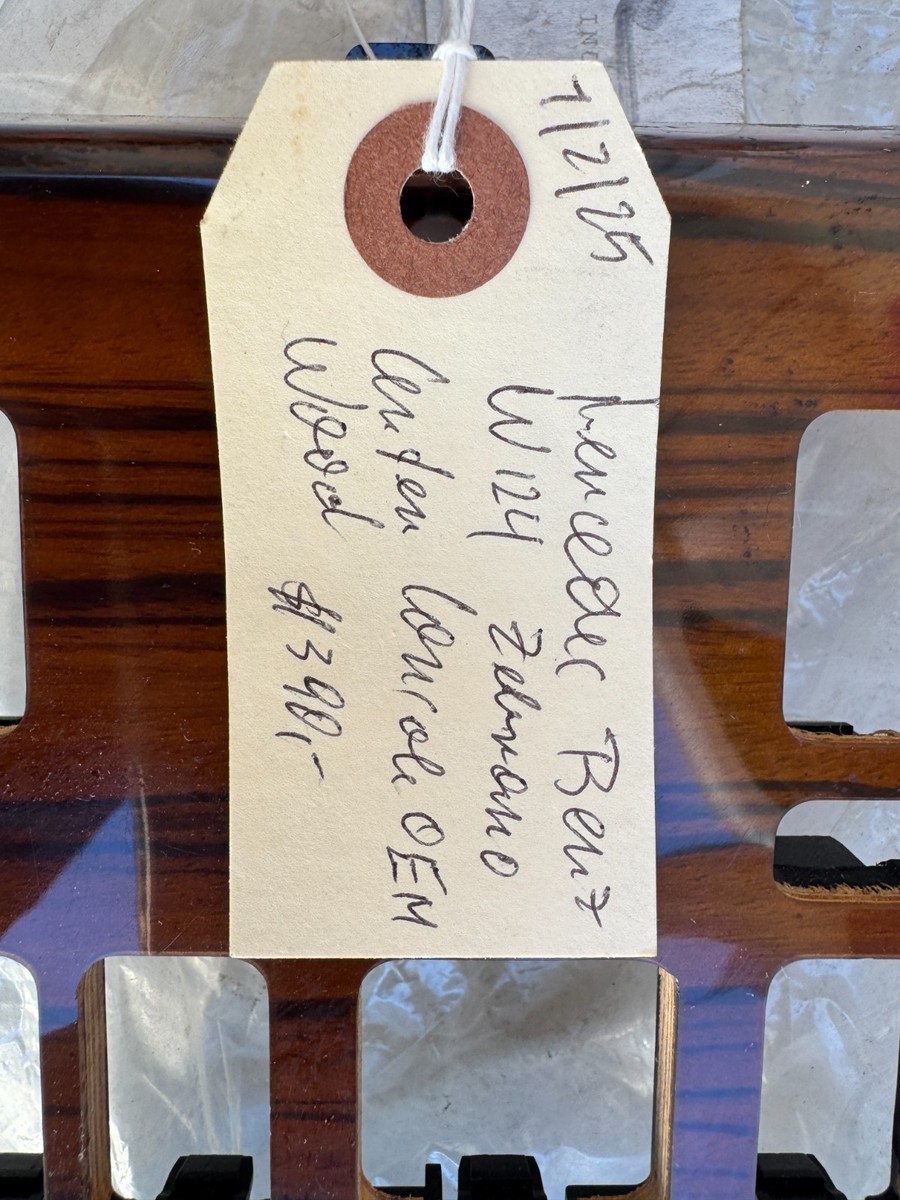 7/2/25
Mercedes Benz
W124 Zebrano
Center Console OEM
Wood $390,-